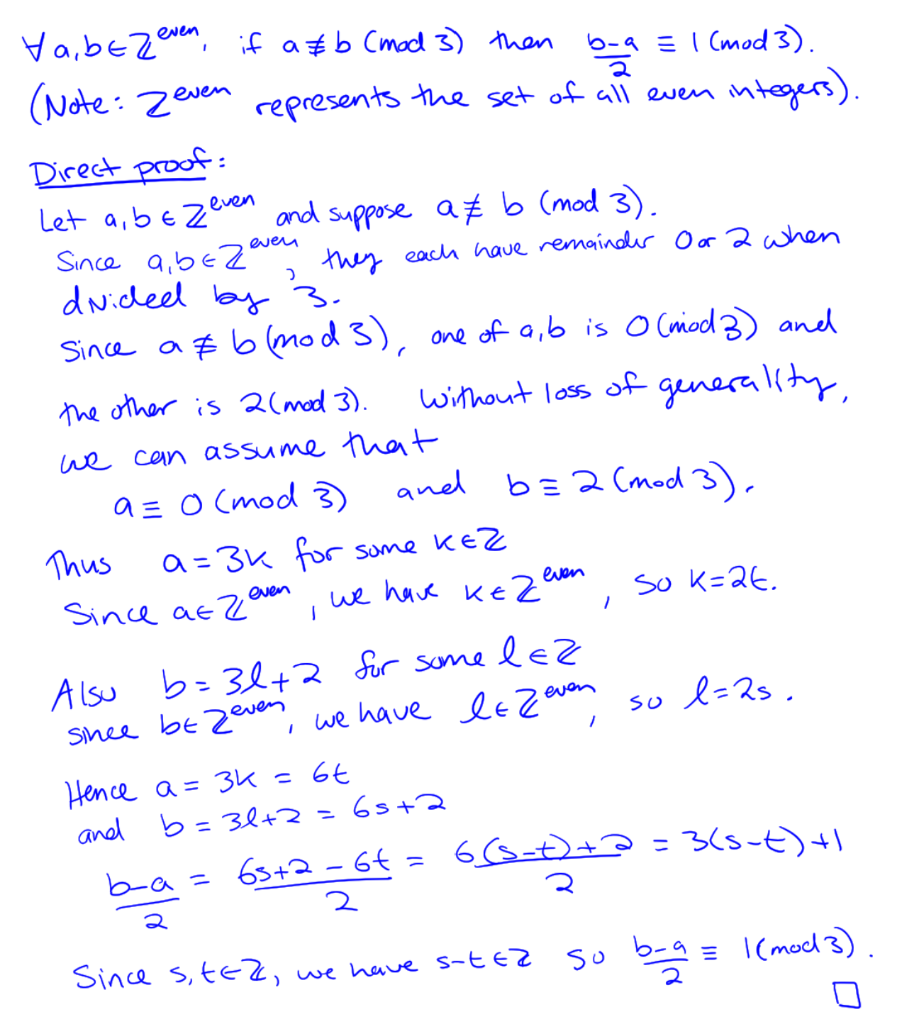 ∀ a,b ∈ ℤ^even, if a ≢ b (mod 3) then (b-a)/2 ≡ 1 (mod 3).
(Note: ℤ^even represents the set of all even integers).
Direct proof:
Let a,b ∈ ℤ^even and suppose a ≢ b (mod 3).
Since a,b ∈ ℤ^even, they each have remainder 0 or 2 when
divided by 3.
Since a ≢ b (mod 3), one of a,b is 0 (mod 3) and
the other is 2 (mod 3). Without loss of generality,
we can assume that
a ≡ 0 (mod 3) and b ≡ 2 (mod 3).
Thus a = 3k for some k ∈ ℤ
Since a ∈ ℤ^even, we have k ∈ ℤ^even, so k = 2t.
Also b = 3l+2 for some l ∈ ℤ
since b ∈ ℤ^even, we have l ∈ ℤ^even, so l = 2s.
Hence a = 3k = 6t
and b = 3l+2 = 6s+2
(b-a)/2 = (6s+2-6t)/2 = (6(s-t)+2)/2 = 3(s-t)+1
Since s,t ∈ ℤ, we have s-t ∈ ℤ so (b-a)/2 ≡ 1 (mod 3).
□